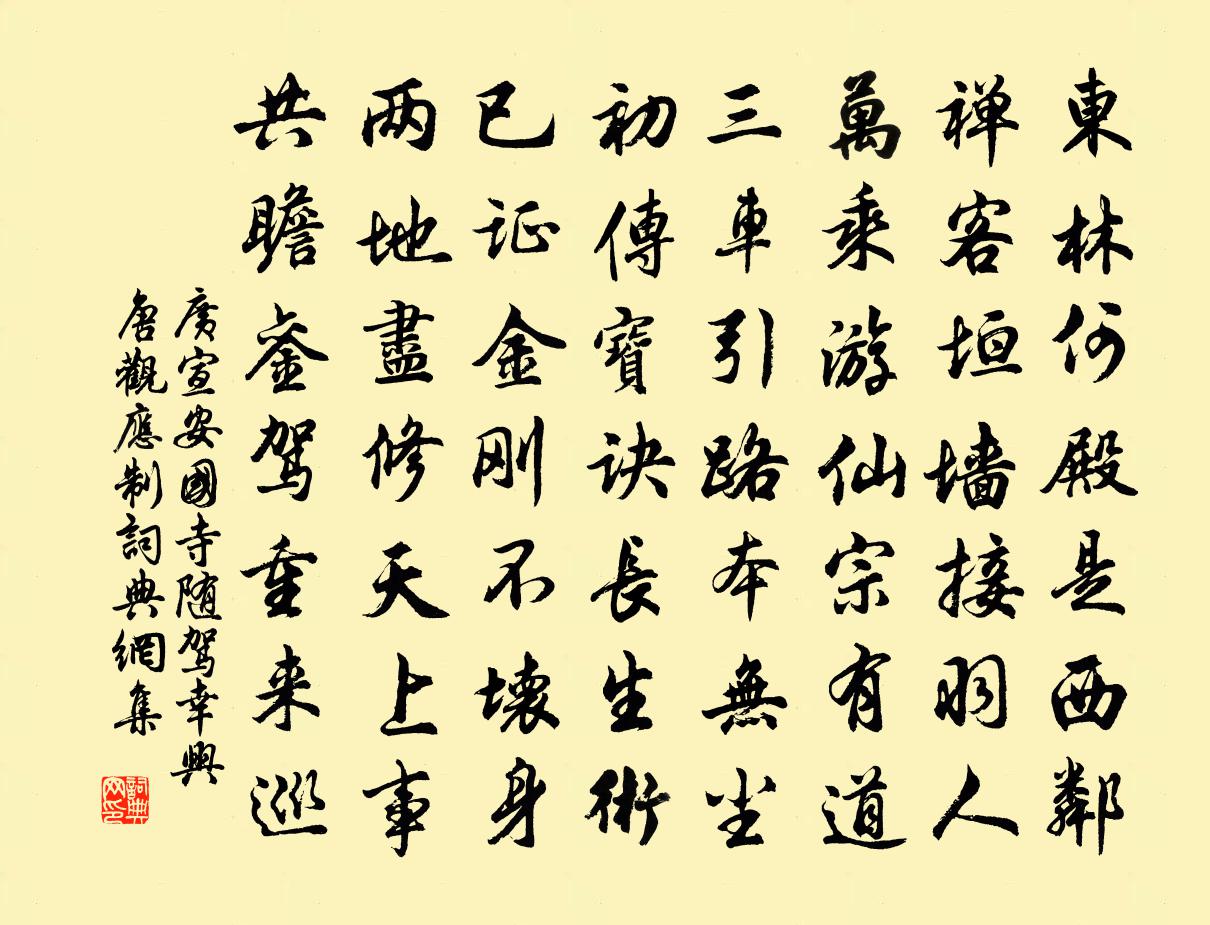 東林何殿是西鄰
禅客垣墙接羽人
萬乘游仙宗有道
三車引路本無尘
初傳寶诀長生術
已证金刚不壞身
两地盡修天上事
共瞻銮驾重来巡
廣宣安國寺随驾幸興
唐觀應制詞典網集
詞典网印